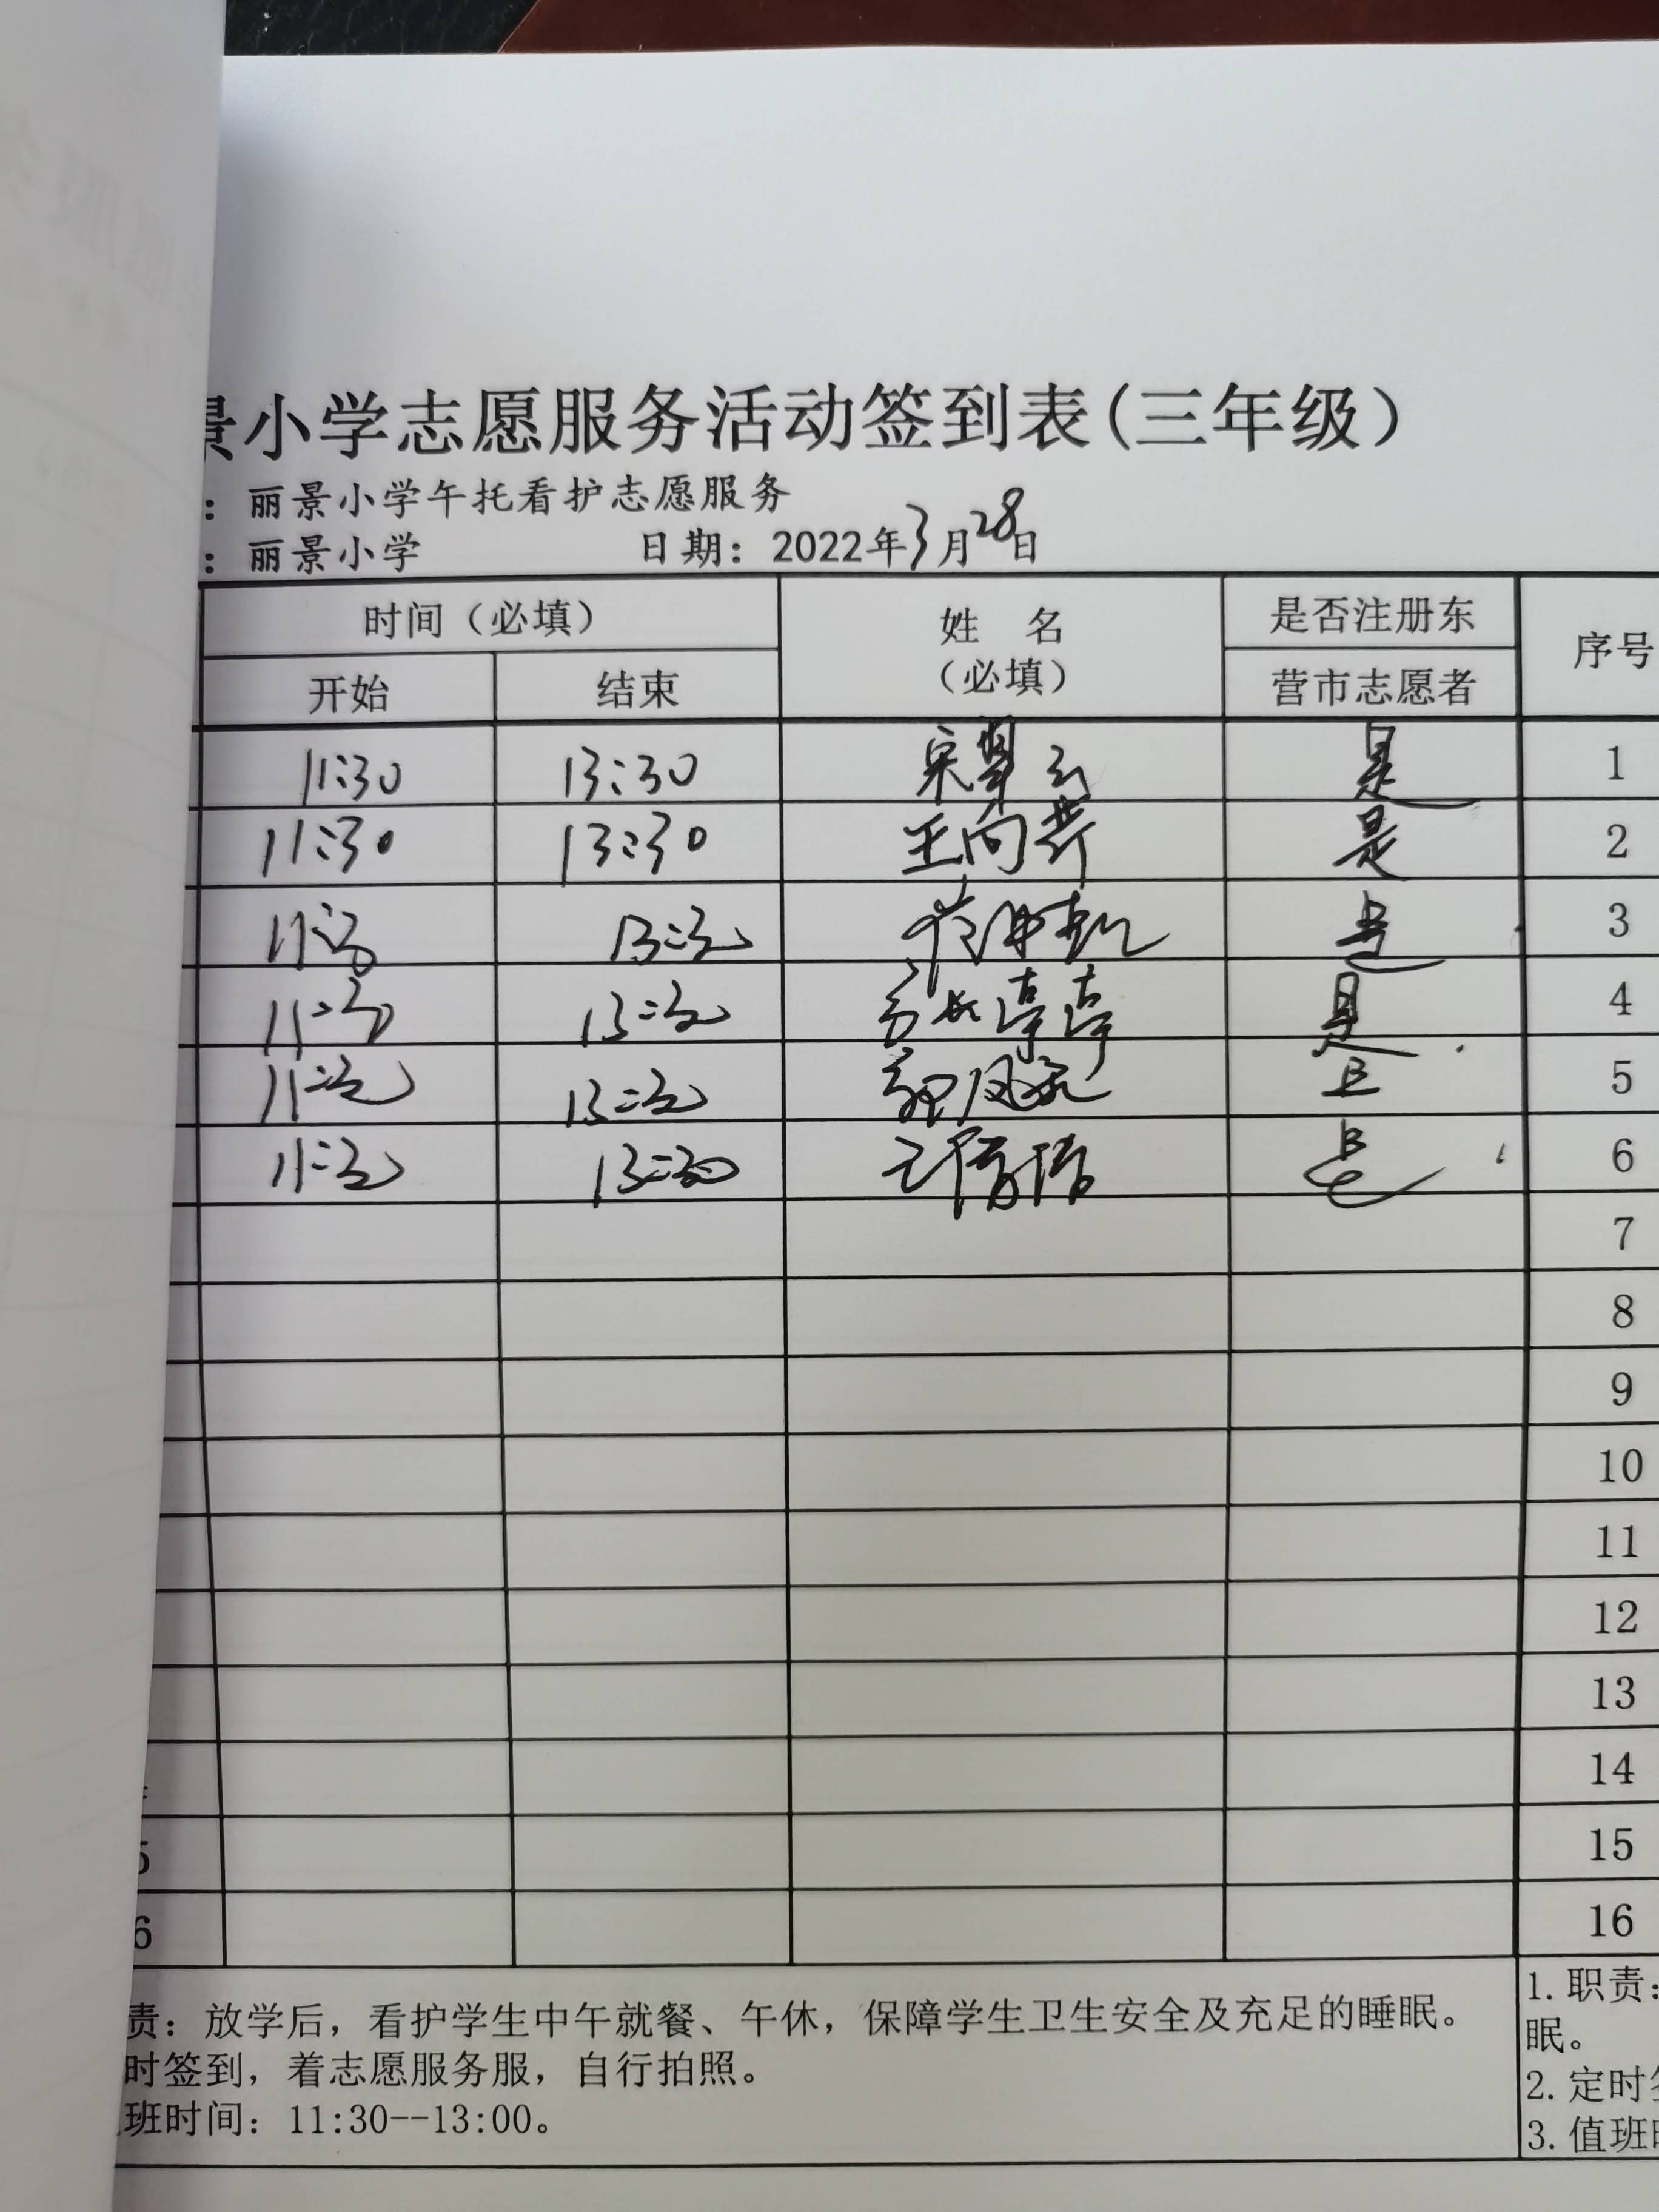 景小学志愿服务活动签到表(三年级）
：丽景小学午托看护志愿服务
：丽景小学 日期：2022年3月28日
时间（必填） 姓 名 是否注册东 序号
开始 结束 （必填） 营市志愿者
11:30 13:30 宋翠云 是 1
11:30 13:30 王向荣 是 2
11:30 13:30 是 3
11:30 13:30 停停 是 4
11:30 13:30 是 5
11:30 13:30 是 6
7
8
9
10
11
12
13
14
5 15
6 16
责：放学后，看护学生中午就餐、午休，保障学生卫生安全及充足的睡眠。
时签到，着志愿服务服，自行拍照。
班时间：11:30--13:00。
1.职责：
眠。
2.定时
3.值班